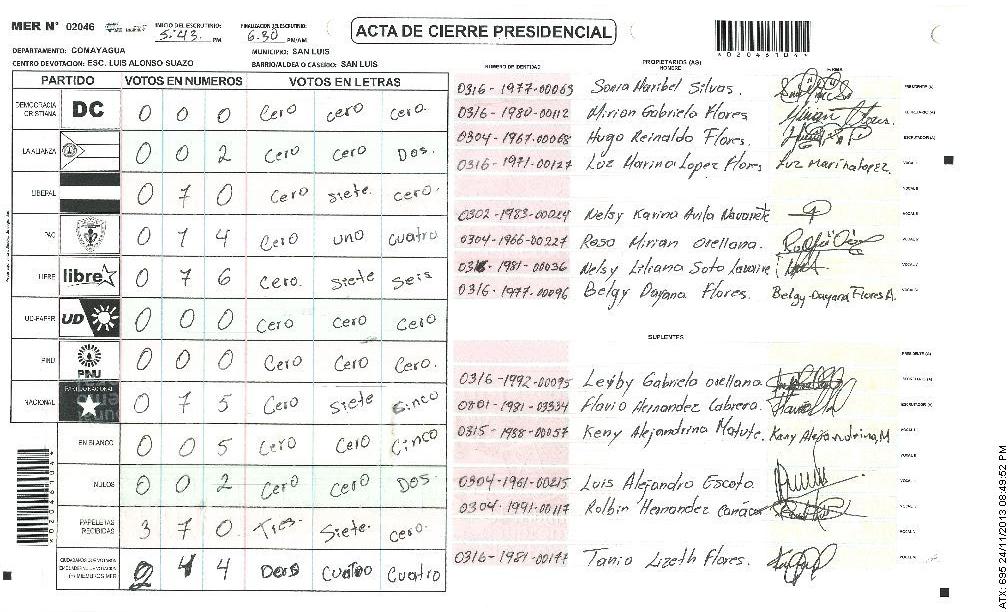 MER N° 02046
INICIO DEL ESCRUTINIO: 5:43 PM
FINALIZACION DEL ESCRUTINIO: 6:30 PM/AM
ACTA DE CIERRE PRESIDENCIAL
*02046104*
DEPARTAMENTO: COMAYAGUA
MUNICIPIO: SAN LUIS
CENTRO DE VOTACION: ESC. LUIS ALONSO SUAZO
BARRIO/ALDEA O CASERIO: SAN LUIS
PARTIDO VOTOS EN NUMEROS VOTOS EN LETRAS
DEMOCRACIA CRISTIANA DC 0 0 0 Cero cero cero.
LA ALIANZA 0 0 2 Cero Cero Dos.
LIBERAL 0 7 0 Cero siete. cero.
PAC 0 1 4 Cero uno cuatro
LIBRE libre 0 7 6 Cero. siete seis
UD-FAPER UD 0 0 0 Cero Cero Cero
PINU PNU 0 0 0 Cero Cero. Cero.
NACIONAL PARTIDO NACIONAL 0 7 5 Cero Siete cinco
EN BLANCO 0 0 5 Cero Cero Cinco
NULOS 0 0 2 Cero Cero Dos.
PAPELETAS RECIBIDAS 3 7 0 Tres. Siete. cero.
2 4 4 Dos Cuatro Cuatro
*02046104*
NUMERO DE IDENTIDAD
PROPIETARIOS (AS)
NOMBRE
FIRMA
0316-1977-00063 Sonia Maribel Silvas. PRESIDENTE (A)
0316-1980-00112 Mirian Gabriela Flores SECRETARIO (A)
0304-1967-00068 Hugo Reinaldo Flores. ESCRUTADOR (A)
0316-1971-00127 Luz Marina Lopez Flores Luz Marina Lopez. VOCAL 1
0302-1983-00024 Nelsy Karina Avila Navarrete
0304-1966-00227 Rosa Mirian orellana.
1981-00036 Nelsy Liliana Soto
0316-1977-00096 Belgy Dayana Flores. Belgy Dayana Flores A.
SUPLENTES
PRESIDENTE (A)
0316-1992-00095 Leyby Gabriela orellana SECRETARIO (A)
0801-1981-03334 Flavio Hernandez Cabrera. ESCRUTADOR (A)
0315-1988-00057 Keny Alejandrina Matute. Keny Alejandrina M
0304-1961-00215 Luis Alejandro Escoto
0304-1991-00117 Rolbin Hernandez
0316-1981-00177 Tania Lizeth Flores.
ATX: 695 24/11/2013 08:49:52 PM